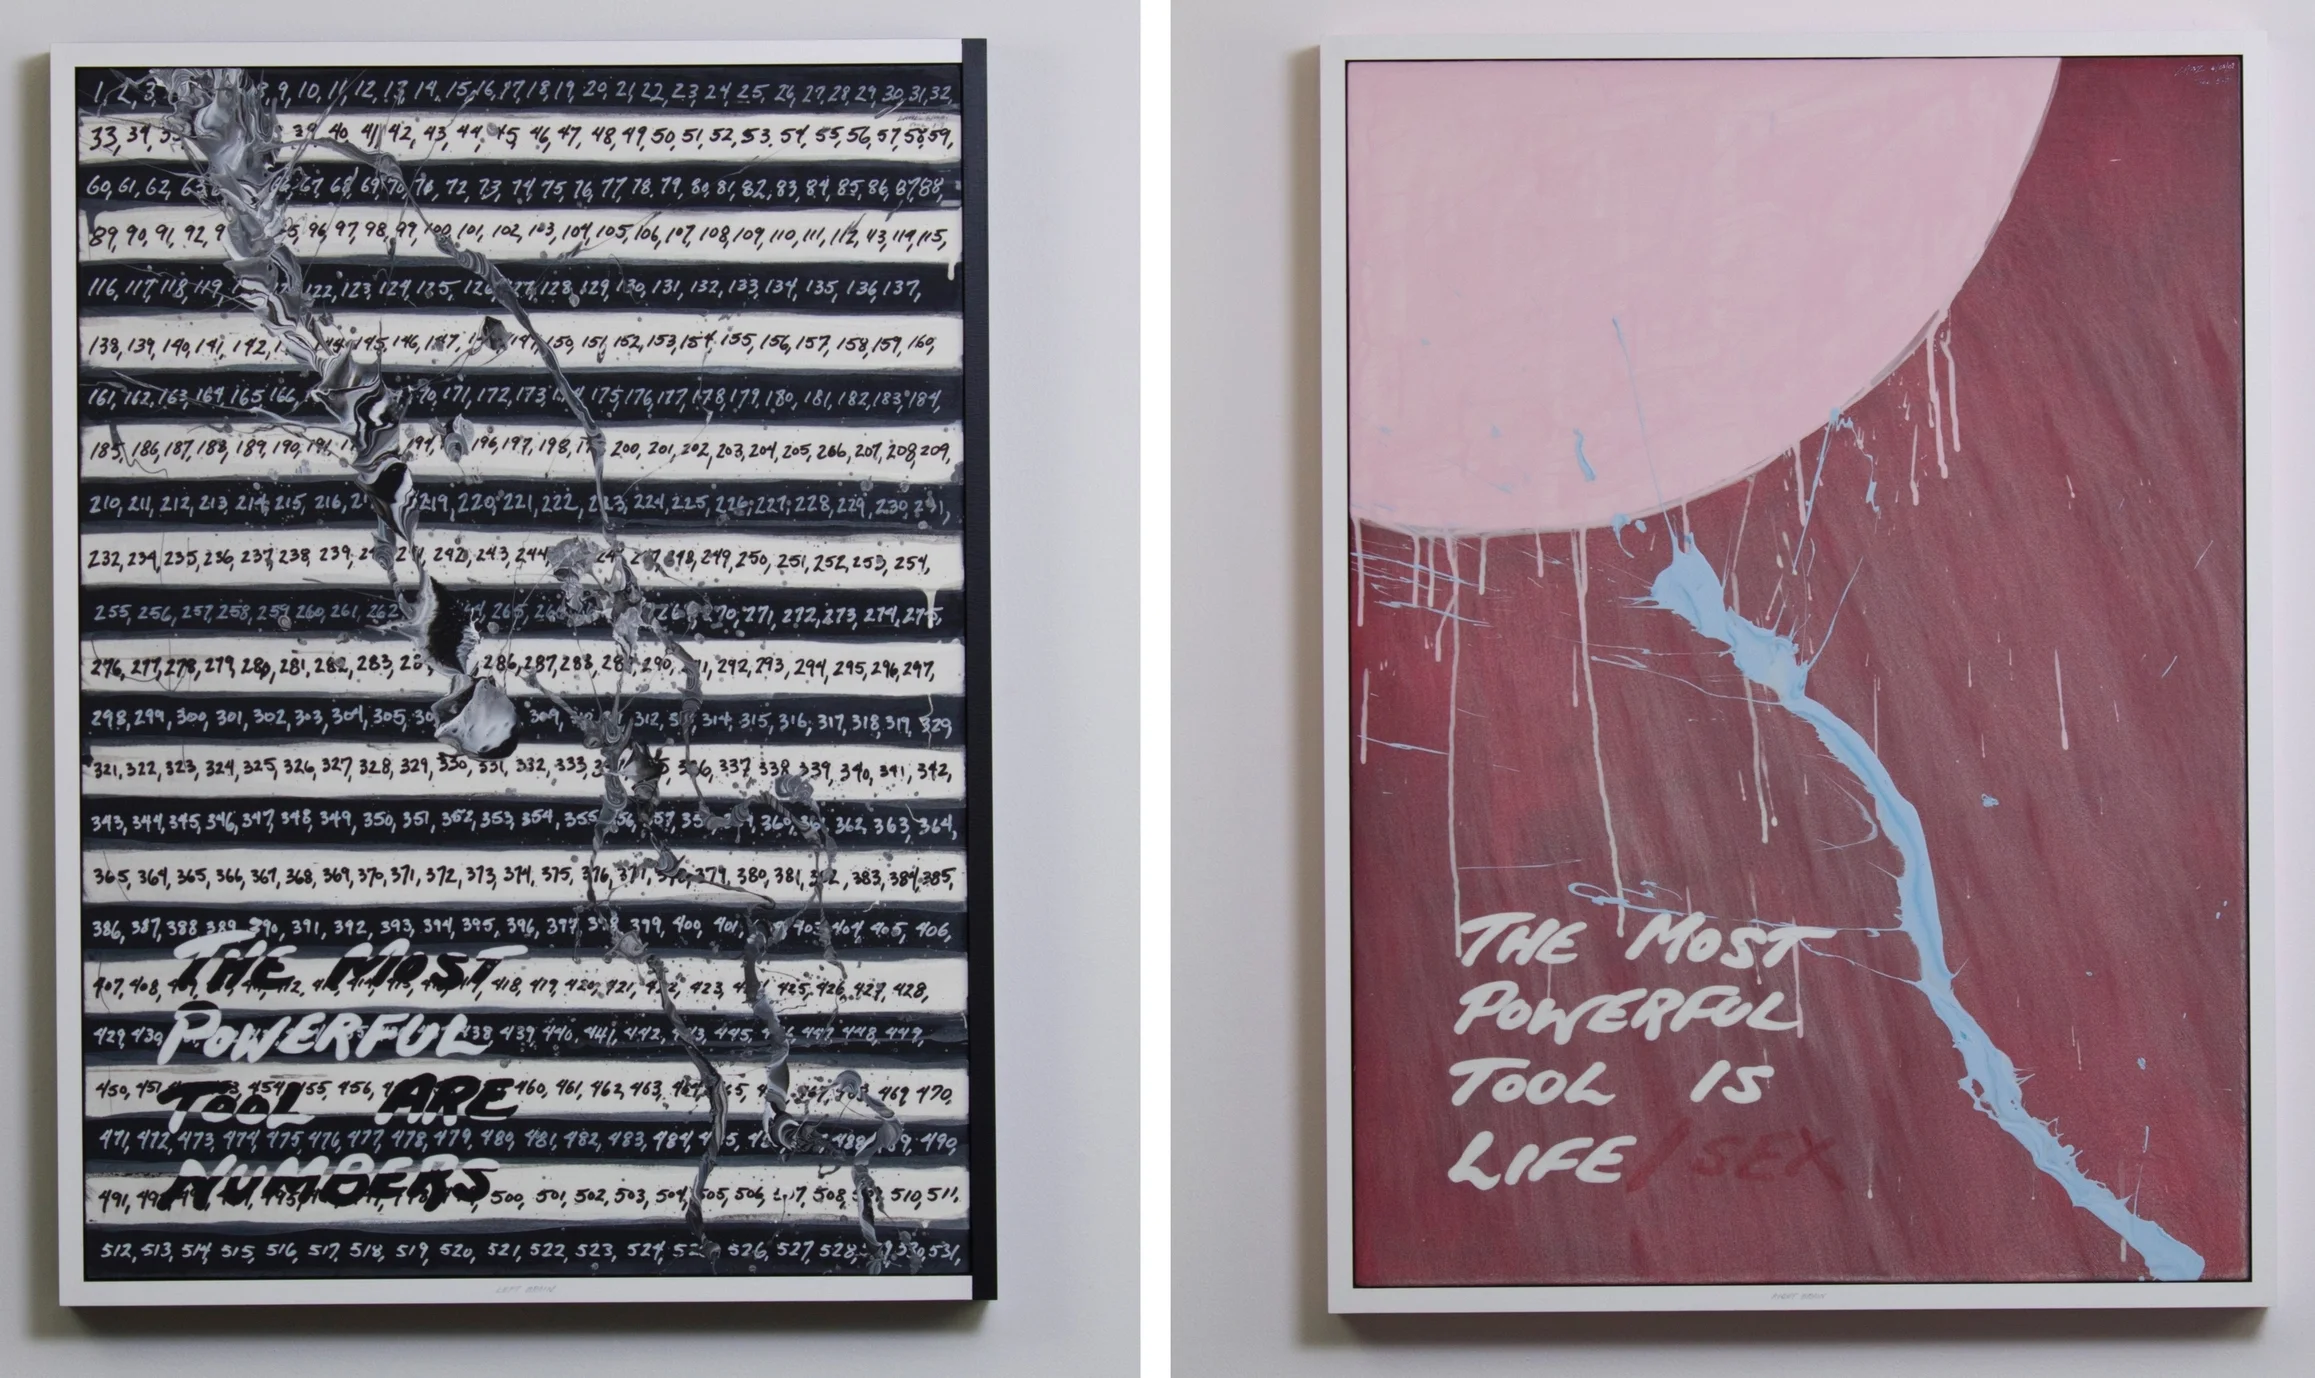 1, 2, 3 9, 10, 11, 12, 13, 14, 15, 16, 17, 18, 19, 20, 21, 22, 23, 24, 25, 26, 27, 28, 29, 30, 31, 32,
33, 34, 39, 40, 41, 42, 43, 44, 45, 46, 47, 48, 49, 50, 51, 52, 53, 54, 55, 56, 57, 58, 59,
60, 61, 62, 63 67, 68, 69, 70, 71, 72, 73, 74, 75, 76, 77, 78, 79, 80, 81, 82, 83, 84, 85, 86, 87, 88,
89, 90, 91, 92, 96, 97, 98, 99, 100, 101, 102, 103, 104, 105, 106, 107, 108, 109, 110, 111, 112, 113, 114, 115,
116, 117, 118, 119, 122, 123, 124, 125, 126, 127, 128, 129, 130, 131, 132, 133, 134, 135, 136, 137,
138, 139, 140, 141, 142, 145, 146, 147, 149, 150, 151, 152, 153, 154, 155, 156, 157, 158, 159, 160,
161, 162, 163, 164, 165, 166, 171, 172, 173, 175, 176, 177, 178, 179, 180, 181, 182, 183, 184,
185, 186, 187, 188, 189, 190, 191, 194, 196, 197, 198, 200, 201, 202, 203, 204, 205, 206, 207, 208, 209,
210, 211, 212, 213, 214, 215, 216, 219, 220, 221, 222, 223, 224, 225, 226, 227, 228, 229, 230, 231,
232, 234, 235, 236, 237, 238, 239, 242, 243, 244 248, 249, 250, 251, 252, 253, 254,
255, 256, 257, 258, 259, 260, 261, 262 265, 270, 271, 272, 273, 274, 275,
276, 277, 278, 279, 280, 281, 282, 283, 286, 287, 288, 290, 292, 293, 294, 295, 296, 297,
298, 299, 300, 301, 302, 303, 304, 305, 309, 312, 314, 315, 316, 317, 318, 319, 329
321, 322, 323, 324, 325, 326, 327, 328, 329, 330, 331, 332, 333, 336, 337, 338, 339, 340, 341, 342,
343, 344, 345, 346, 347, 348, 349, 350, 351, 352, 353, 354, 355 360, 362, 363, 364,
365, 364, 365, 366, 367, 368, 369, 370, 371, 372, 373, 374, 375, 376, 377, 378, 379, 380, 381, 382, 383, 384, 385,
386, 387, 388 389, 390, 391, 392, 393, 394, 395, 396, 397, 398 399, 400, 401, 403, 404, 405, 406,
407, 408, 418, 419, 420, 421, 422, 423, 425, 426, 427, 428,
429, 430, 438, 439, 440, 441, 442, 445, 447, 448, 449,
450, 451, 454, 455, 456, 460, 461, 462, 463, 464 467, 469, 470,
471, 472, 473, 474, 475, 476, 477, 478, 479, 480, 481, 482, 483, 484 488, 490,
491, 500, 501, 502, 503, 504, 505, 506, 508, 510, 511,
512, 513, 514, 515, 516, 517, 518, 519, 520, 521, 522, 523, 524 526, 527, 528, 530, 531,
THE MOST
POWERFUL
TOOL ARE
NUMBERS
LEFT BRAIN
THE MOST
POWERFUL
TOOL IS
LIFE/SEX
RIGHT BRAIN